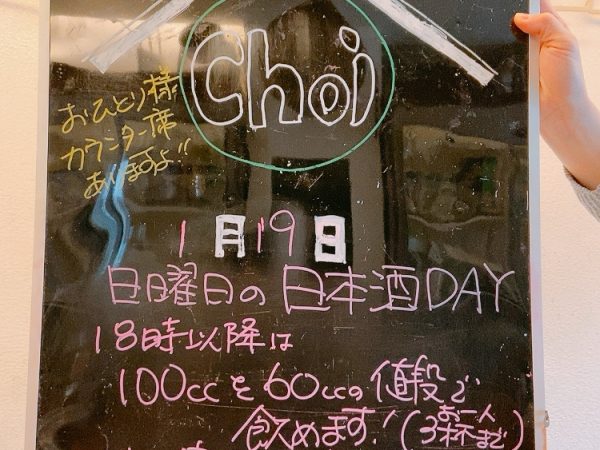 Choi
おひとり様
カウンター席
ありますよ!!
1月19日
日曜日の日本酒DAY
18時以降は
100ccを60ccの値段で
飲めます!(お一人
3杯まで)